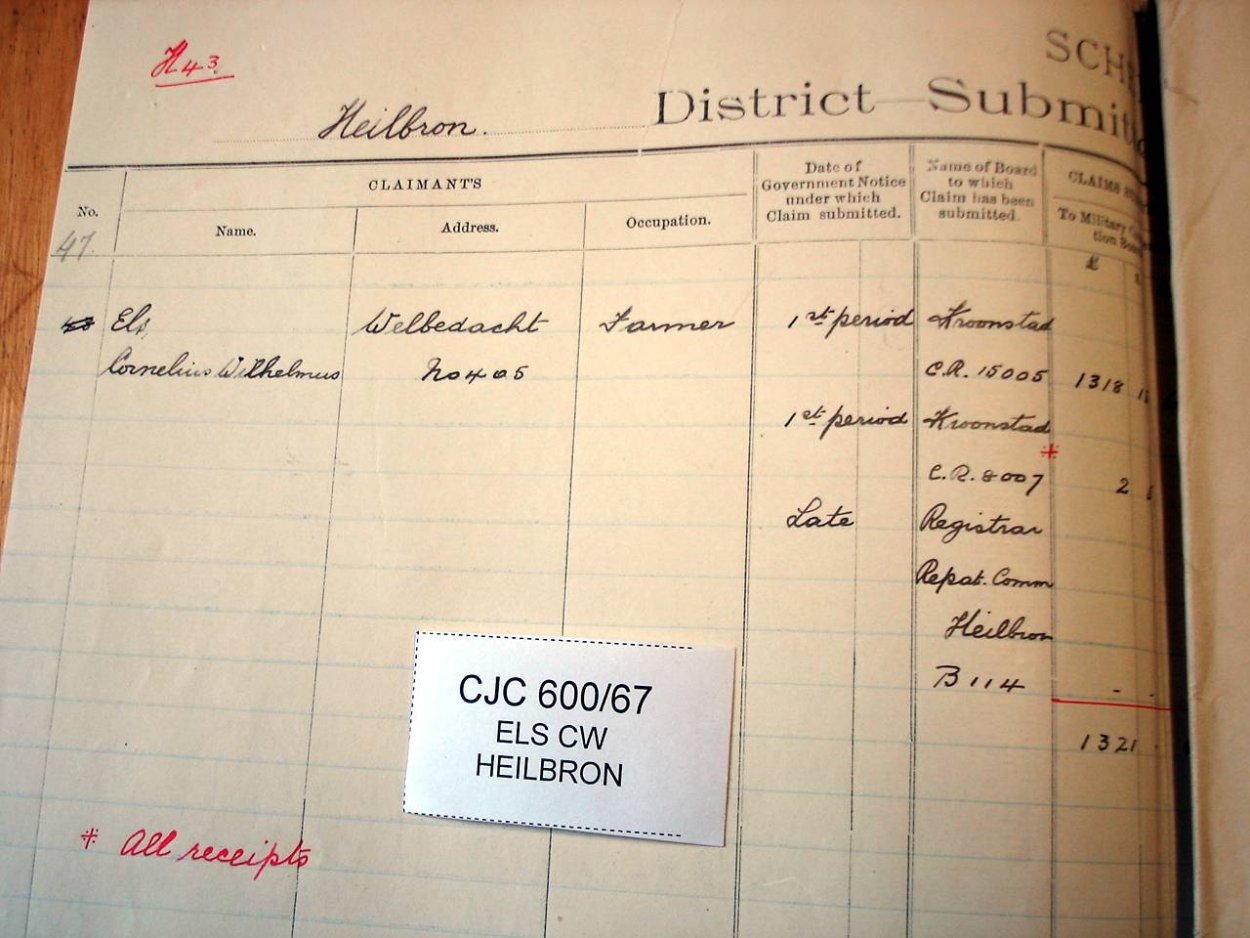 H43
SCH
Heilbron. District—Submitt
CLAIMANT'S
No.
Name.
Address.
Occupation.
Date of
Government Notice
under which
Claim submitted.
Name of Board
to which
Claim has been
submitted.
CLAIMS
To Military
tion Boa
£
47.
Els, Welbedacht Farmer 1st period Kroonstad
Cornelius Wilhelmus No 405 C.R. 15005 1318
1st period Kroonstad
*
C.R. 8007 2
Late Registrar
Repat. Comm
Heilbron
B 114 - -
1321
CJC 600/67
ELS CW
HEILBRON
* All receipts